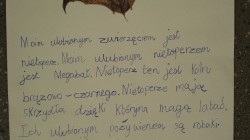 Moim ulubionym zwierzęciem jest
nietoperz. Moim ulubionym nietoperzem
jest Negobat. Nietoperz ten jest koloru
brązowo-czarnego. Nietoperze mają
skrzydła dzięki którym mogą latać.
Ich ulubionym pożywieniem są robaki